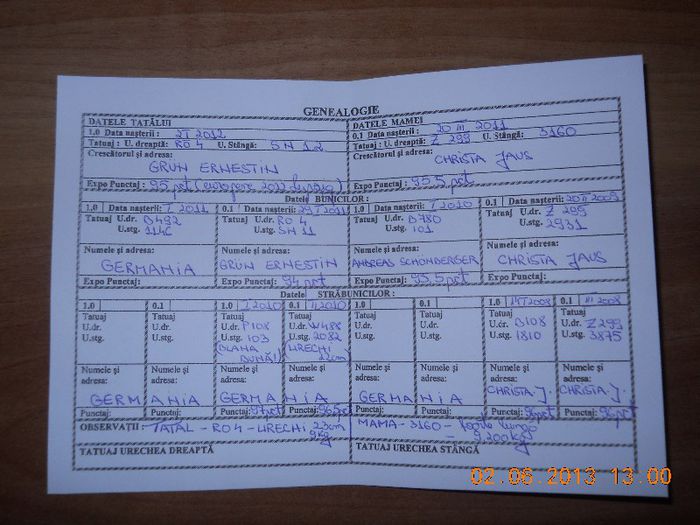 GENEALOGIE
DATELE TATĂLUI
1.0 Data nașterii: 2 I 2012
Tatuaj: U. dreaptă: RO 4 U. Stângă: SN 12
Crescătorul și adresa:
GRÜN ERNESTIN
Expo Punctaj: 95 pct (europene 2012
DATELE MAMEI
0.1 Data nașterii: 20 III 2011
Tatuaj: U. dreaptă: Z 299 U. Stângă: 3160
Crescătorul și adresa:
CHRISTA JAUS
Expo Punctaj: 95.5 pct
Datele BUNICILOR:
1.0 Data nașterii: I 2011 0.1 Data nașterii: 29 I 2011 1.0 Data nașterii: I 2010 0.1 Data nașterii: 20 II 2009
Tatuaj U.dr. B492 Tatuaj U.dr. RO 4 Tatuaj U.dr. B780 Tatuaj U.dr. Z 299
U.stg. 114C U.stg. SN 11 U.stg. 101 U.stg. 2931
Numele și adresa: Numele și adresa: Numele și adresa: Numele și adresa:
GERMANIA GRÜN ERNESTIN ANDREAS SCHONBERGER CHRISTA JAUS
Expo Punctaj: Expo Punctaj: 94 pct Expo Punctaj: 95,5 pct Expo Punctaj:
Datele STRĂBUNICILOR:
1.0 0.1 1.0 I 2010 0.1 I 2010 1.0 0.1 1.0 III 2008 0.1 III 2008
Tatuaj Tatuaj Tatuaj Tatuaj Tatuaj Tatuaj Tatuaj Tatuaj
U.dr. U.dr. U.dr. P108 U.dr. W488 U.dr. U.dr. U.dr. B108 U.dr. Z299
U.stg. U.stg. U.stg. 103 U.stg. 2082 U.stg. U.stg. U.stg. 1810 U.stg. 3875
(BLANA URECHI
BUNĂ! 23cm
Numele și adresa: Numele și adresa: Numele și adresa: Numele și adresa: Numele și adresa: Numele și adresa: Numele și adresa: Numele și adresa:
GERMANIA GERMANIA GERMANIA CHRISTA J. CHRISTA J.
Punctaj: Punctaj: Punctaj: 97 pct Punctaj: 96.5 pct Punctaj: Punctaj: Punctaj: 96 pct Punctaj: 96 pct
OBSERVAȚII: TATAL - RO4 - URECHI 23cm
9kg
MAMA - 3160 - lungo
- 9,200kg
TATUAJ URECHEA DREAPTĂ
TATUAJ URECHEA STÂNGĂ
02.06.2013 13:00